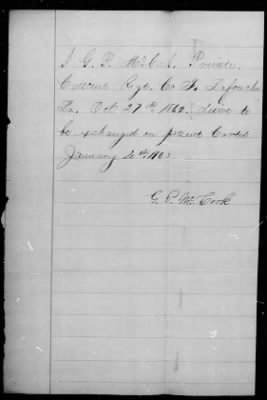 I G. P. McCook Private
Crescent Regt. Co I. Lafourche
La. Oct 27th 1862. desire to
be exchanged on present Cartel
January 20th 1863
G. P. McCook